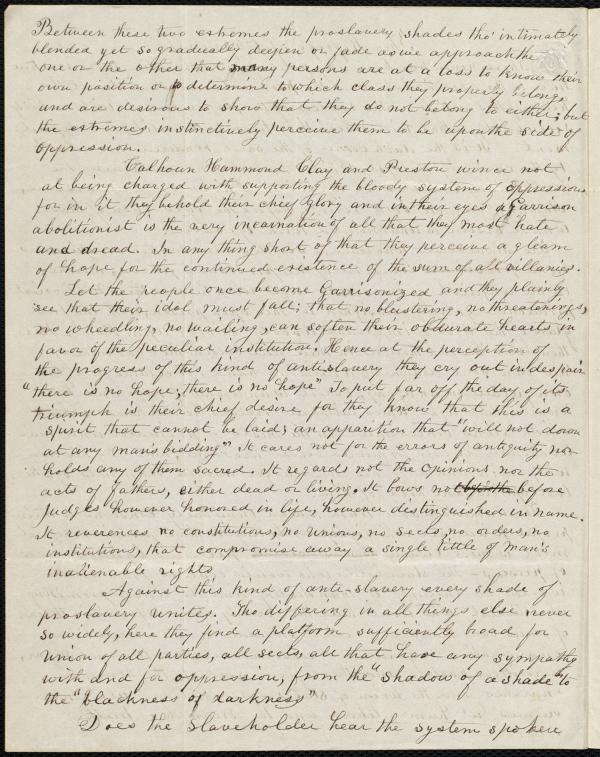 Between these two extremes the proslavery shades tho' intimately
blended yet so gradually deepen or fade as we approach the
one or the other that many persons are at a loss to know their
own position or to determine to which class they properly belong,
and are desirous to show that they do not belong to either; but
the extremes instinctively perceive them to be upon the side of
oppression.
Calhoun Hammond Clay and Preston wince not
at being charged with supporting the bloody system of oppression
for in it they behold their chief glory and in their eyes a Garrison
abolitionist is the very incarnation of all that they most hate
and dread. In any thing short of that they perceive a gleam
of hope for the continued existence of the sum of all villanies.
Let the people once become Garrisonized and they plainly
see that their idol must fall; that no blustering, no threatenings,
no wheedling, no wailing, can soften their obdurate hearts in
favor of the peculiar institution. Hence at the perception of
the progress of this kind of anti slavery they cry out in despair
"there is no hope; there is no hope" To put far off the day of its
triumph is their chief desire for they know that this is a
spirit that cannot be laid; an apparition that "will not down
at any man's bidding" It cares not for the errors of antiquity nor
holds any of them sacred. It regards not the opinions nor the
acts of fathers, either dead or living. It bows not before
Judges however honored in life, however distinguished in name.
It reverences no constitutions, no unions, no sects, no orders, no
institutions, that compromise away a single tittle of man's
inalienable rights
Against this kind of anti-slavery every shade of
proslavery unites. Tho differing in all things else never
so widely, here they find a platform sufficiently broad for
union of all parties, all sects, all that have any sympathy
with and for oppression, from the "shadow of a shade" to
the "blackness of darkness"
Does the slaveholder hear the system spoken